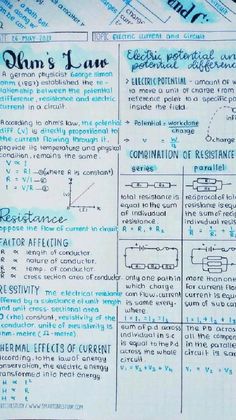 DATE 06 MAY 2021
TOPIC Electric Current and Circuit
Ohm's Law
A german physicist George Simon
ohm (1787) established the re-
lationship between the potential
difference, resistance and electric
current in a circuit.
According to ohm's law, the potential
diff. (V) is directly proportional to
the current flowing through it,
provide its temperature and physical
condition, remains the same
V ∝ I
V = RI (where R is constant)
R = V/I
I = V/R
Resistance
oppose the flow of current in circuit
FACTOR AFFECTING
R ∝ length of conductor.
R ∝ nature of conductor.
R ∝ temp. of conductor.
cross section area of conductor
RESISTIVITY The electrical resistance
offered by a substance of unit length
and unit cross-sectional area
(rho) constant, resistivity of the
conductor. unite of resistivity is
ohm-metre (Ω-metre).
THERMAL EFFECTS OF CURRENT
According, to the law of energy
conservation, the electric energy
transforms into heat energy
H ∝
H ∝ t
H ∝ R
Electric potential and
potential difference
ELECTRIC POTENTIAL - amount of
to move a unit of charge from
reference point to a specific po
inside the field.
Potential = workdone
charge
COMBINATION OF RESISTANCE
series
parallel
total resistance is
equal to the sum
of individual
resistance.
R = R₁ + R₂ + R₃
reciprocal of
resistance is equ
the sum of reci
individual resist
only one path in
which charge
can flow. current
is same every
where.
more than one
for current flo
current is equ
sum of sub cur
sum of p.d across
individual in s.c
is equal to the p.d
across the whole
circuit.
V = V₁ + V₂ + V₃
The P.D across
all the compon
in the paralle
circuit is sam